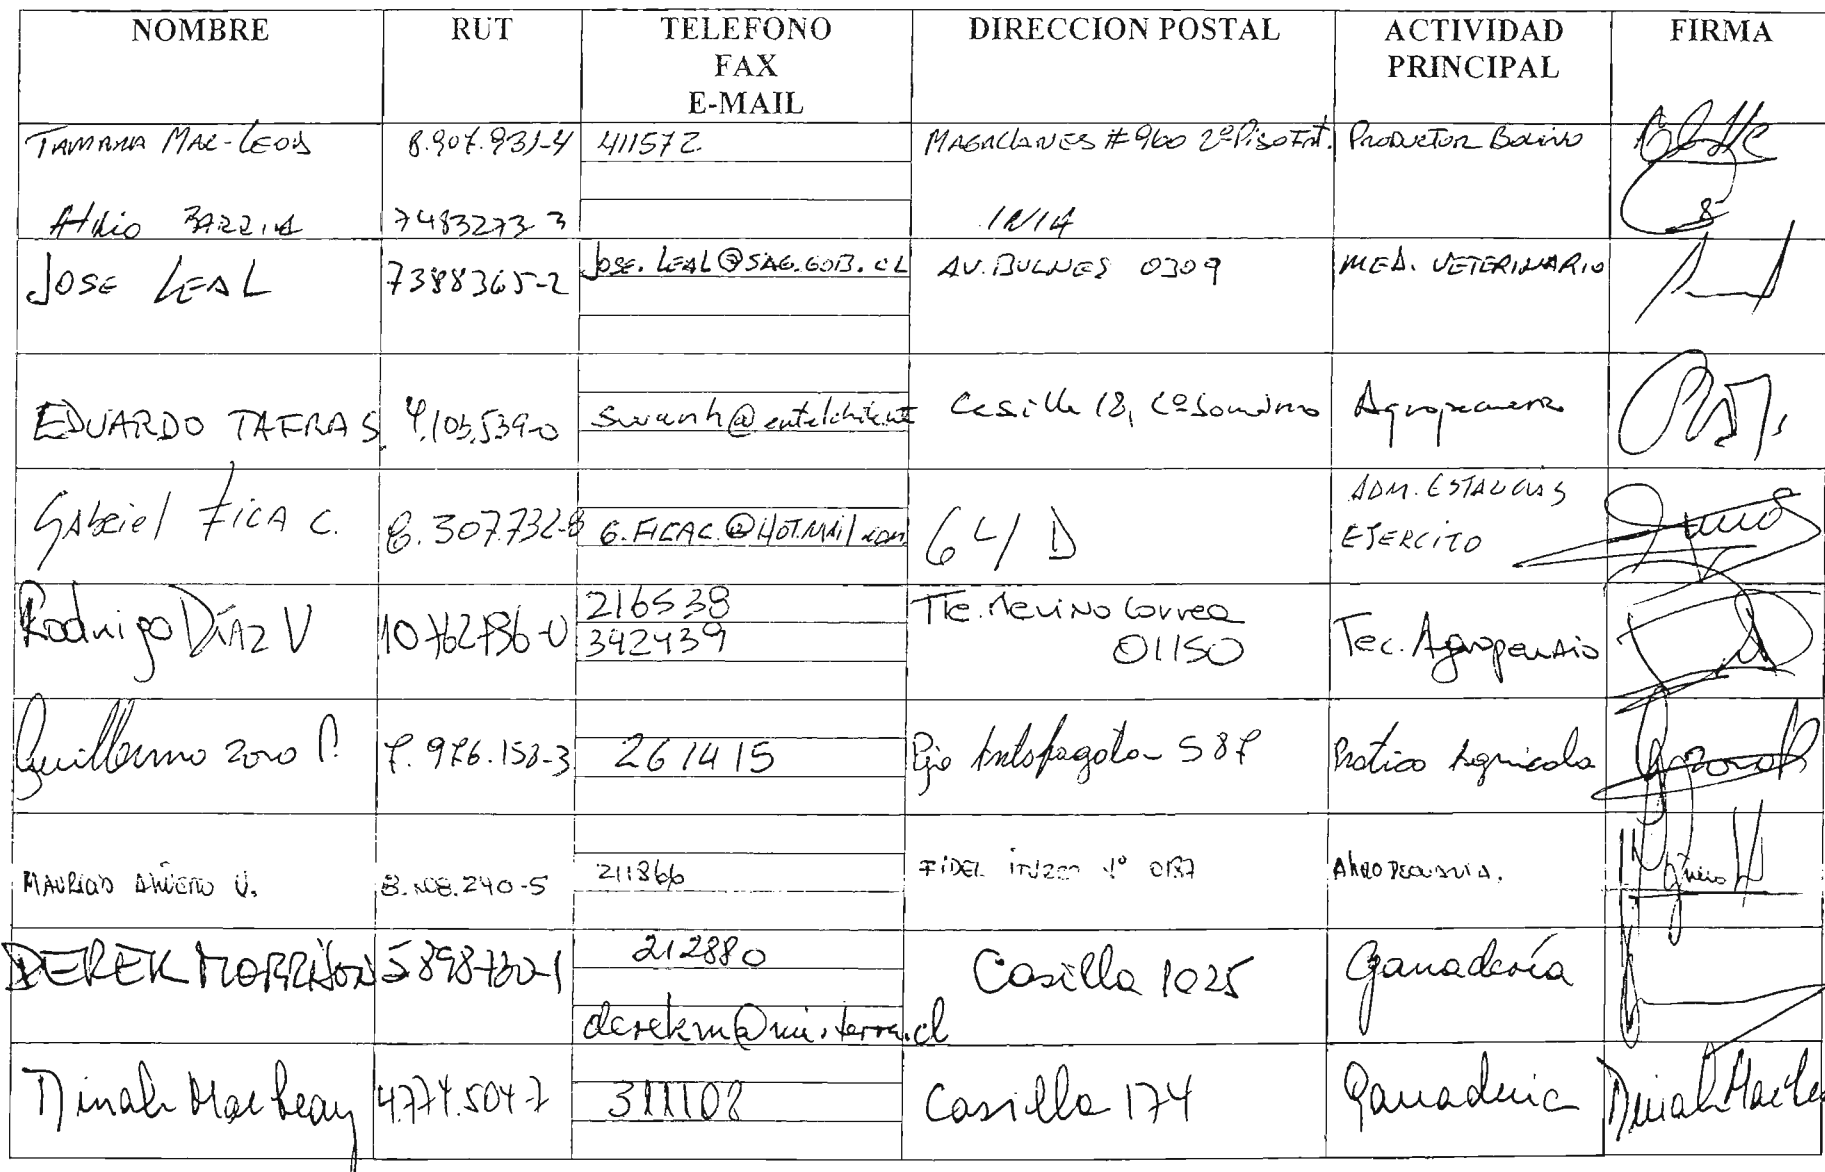 NOMBRE RUT TELEFONO FAX E-MAIL DIRECCION POSTAL ACTIVIDAD PRINCIPAL FIRMA
TAMARA MAC-LEOD 8.907.931-4 411572 MAGALLANES #960 2º PISO INT. PRODUCTOR BOVINO
Atilio BARRIA 7483273-3 INIA
JOSE LEAL 7388365-2 JOSE.LEAL@SAG.GOB.CL AV. BULNES 0309 MED. VETERINARIO
EDUARDO TAFRA S. 4.103.539-0 swanh@entelchile.net Casilla 18, Cº Sombrero Agropecuaria
Gabriel FICA C. 8.307.732-8 G.FICAC.@HOTMAIL.com 64/D ADM. ESTANCIAS
EJERCITO
Rodrigo DíAZ V 10762796-0 216538 Tte. Merino Correa
342439 01150 Tec. Agropecuario
Guillermo Zoro P. 7.976.158-3 261415 Pje Antofagasta 587 Práctico Agrícola
211866 FIDEL Nº 0187 AGROPECUARIA.
DEREK MORRISON 5898730-1 212880 Casilla 1025 Ganadería
derekm@mi.terra.cl
Dinah MacLean 4.774.504-7 311108 Casilla 174 Ganaderia Dinah